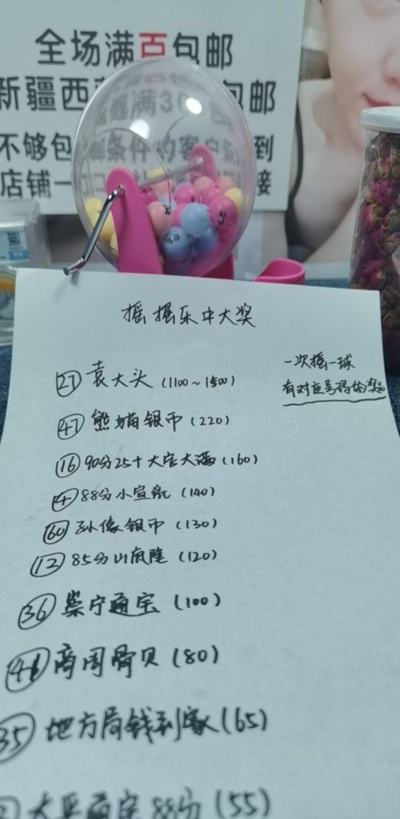 全场满百包邮
新疆西
包邮
满30
不够包
邮条件的客户
到
店铺一
接
摇摇乐中大奖
一次摇一球
有对应号码的奖品
㉗ 袁大头 (1100～1500)
㊼ 熊猫银币 (220)
⑯ 90分25十大定大满 (160)
④ 88分小宣流 (140)
60 孙像银币 (130)
⑫ 85分山底隆 (120)
㊱ 崇宁通宝 (100)
商周骨贝 (80)
㉟ 地方局钱到家 (65)
太平通宝 88分 (55)